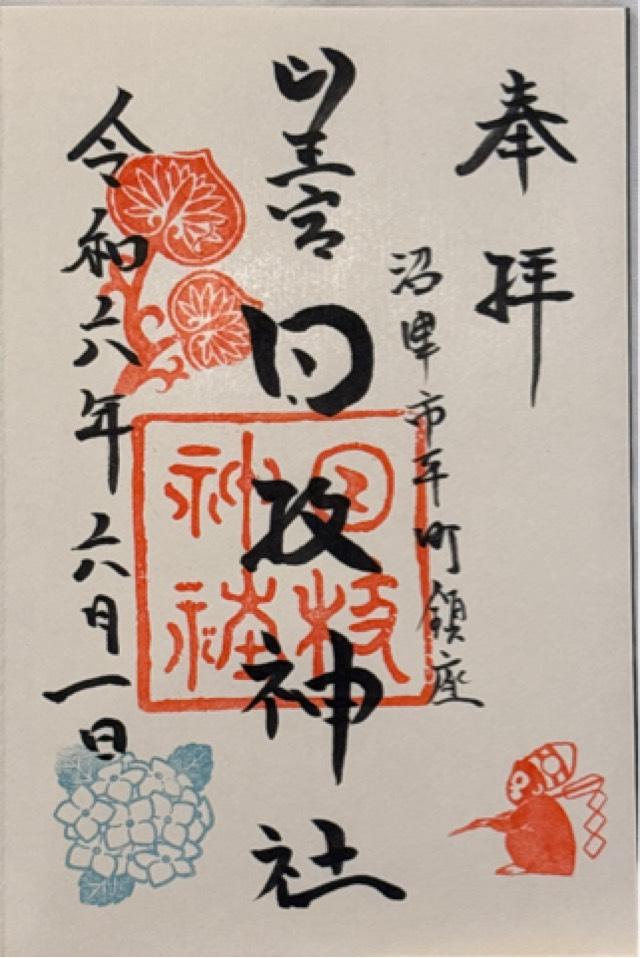 奉拝
沼津市平町鎮座
山王宮
日枝神社
日枝
神社
令和六年六月一日